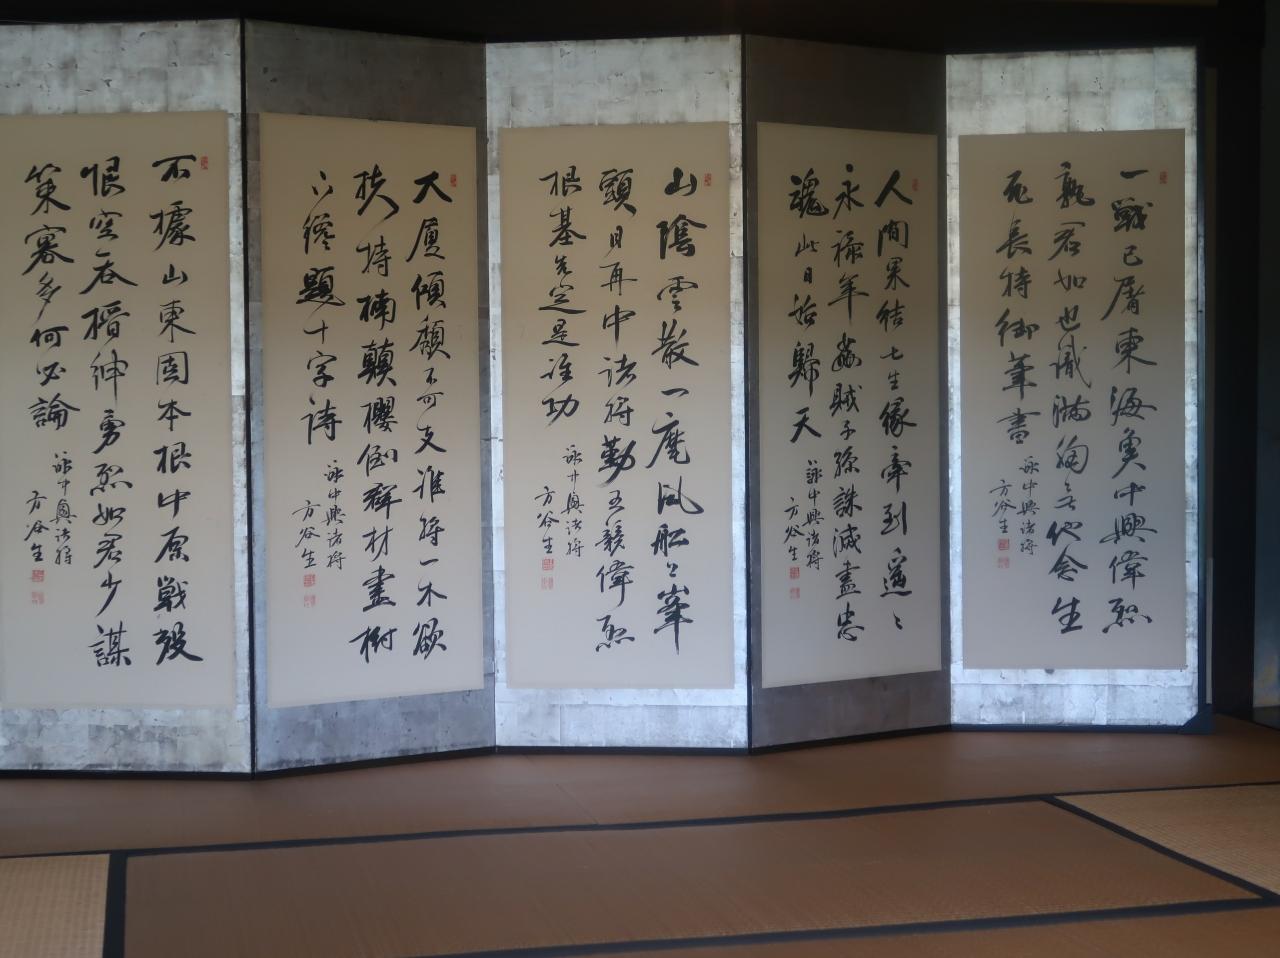 一戰已屠東海奧中興偉烈
孰君如也識滿胸無他念生
死長特御筆書
詠中興諸将
方谷生
人間果結七生縁牽到遥々
永禄年蝨賊子孫誅滅盡忠
魂此日始歸天
詠中興諸将
方谷生
山陰雲散一麾風船上峯
頭日再中諸将勤王競偉烈
根基先定是誰功
詠中興諸将
方谷生
大厦傾頽不可支誰将一木欲
扶持楠顛櫻倒群材盡樹
下纔題十字詩
詠中興諸将
方谷生
不據山東固本根中原戦殺
恨空吞搢紳勇烈如君少謀
策寡多何必論
詠中興諸将
方谷生